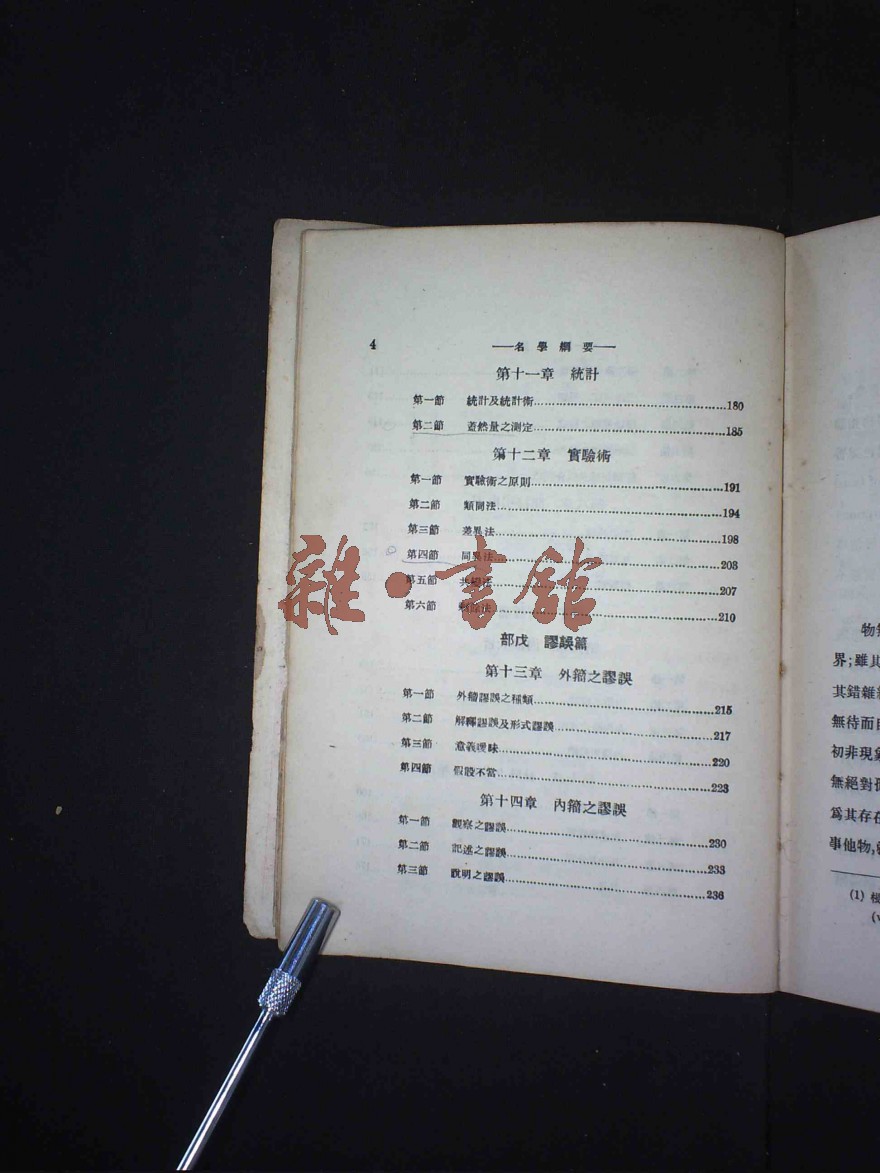 4 ——名學綱要——
第十一章 統計
第一節 統計及統計術……180
第二節 蓋然量之測定……185
第十二章 實驗術
第一節 實驗術之原則……191
第二節 類同法……194
第三節 差異法……198
第四節 同異法……203
第五節 共變法……207
第六節 剩餘法……210
部戊 謬誤篇
第十三章 外籀之謬誤
第一節 外籀謬誤之種類……215
第二節 解釋謬誤及形式謬誤……217
第三節 意義曖昧……220
第四節 假設不當……223
第十四章 內籀之謬誤
第一節 觀察之謬誤……230
第二節 記述之謬誤……233
第三節 說明之謬誤……236
雜·書館
界;雖其
其錯雜
無待而
初非現
無絕對
爲其存在
事他物,
(1)